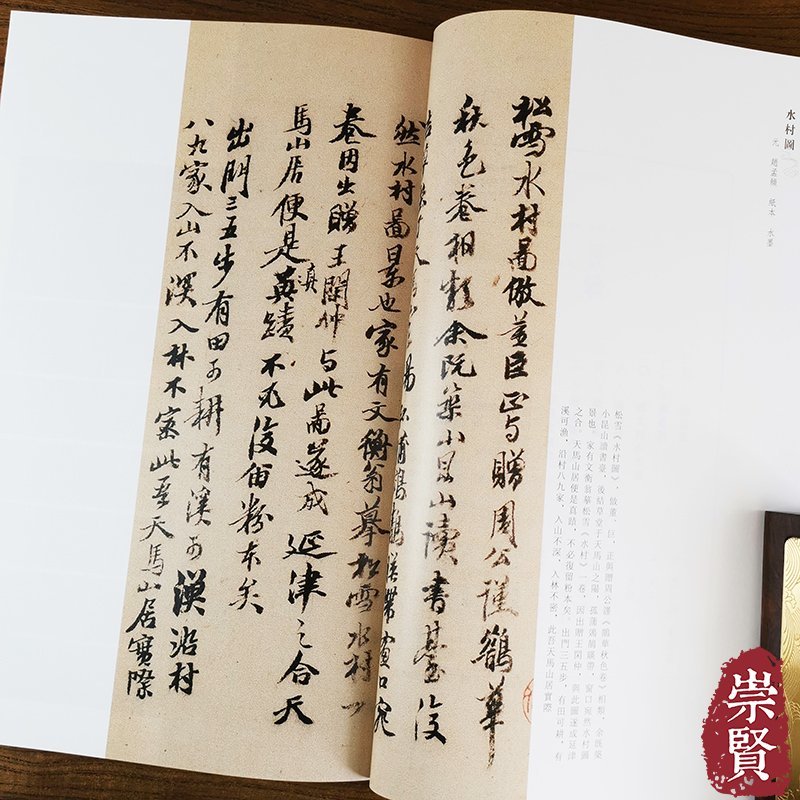 水村圖
元 趙孟頫 紙本 水墨
松雪《水村圖》，倣董、巨，正與贈周公謹《鵲華秋色卷》相類，余既築
小昆山讀書臺，後結草堂于天馬山之陽，孤蒲鵁鶄瞇帶，窗口宛然水村圖
景也。家有文衡翁摹松雪《水村》一卷，因出贈王閑仲，與此圖遂成延津
之合，天馬山居便是真蹟，不必復留粉本矣。出門三五步，有田可耕，有
溪可漁，沿村八九家，入山不深，入林不密，此吾天馬山居實際
松雪水村圖倣董巨正与贈周公謹鵲華
秋色卷相類余既築小昆山讀書臺後
然水村圖景也家有文衡翁摹松雪水村一
卷因出贈王閑仲与此圖遂成延津之合天
馬山居便是真蹟不必復留粉本矣
出門三五步有田可耕有溪可漁沿村
八九家入山不深入林不密此吾天馬山居實際
崇賢